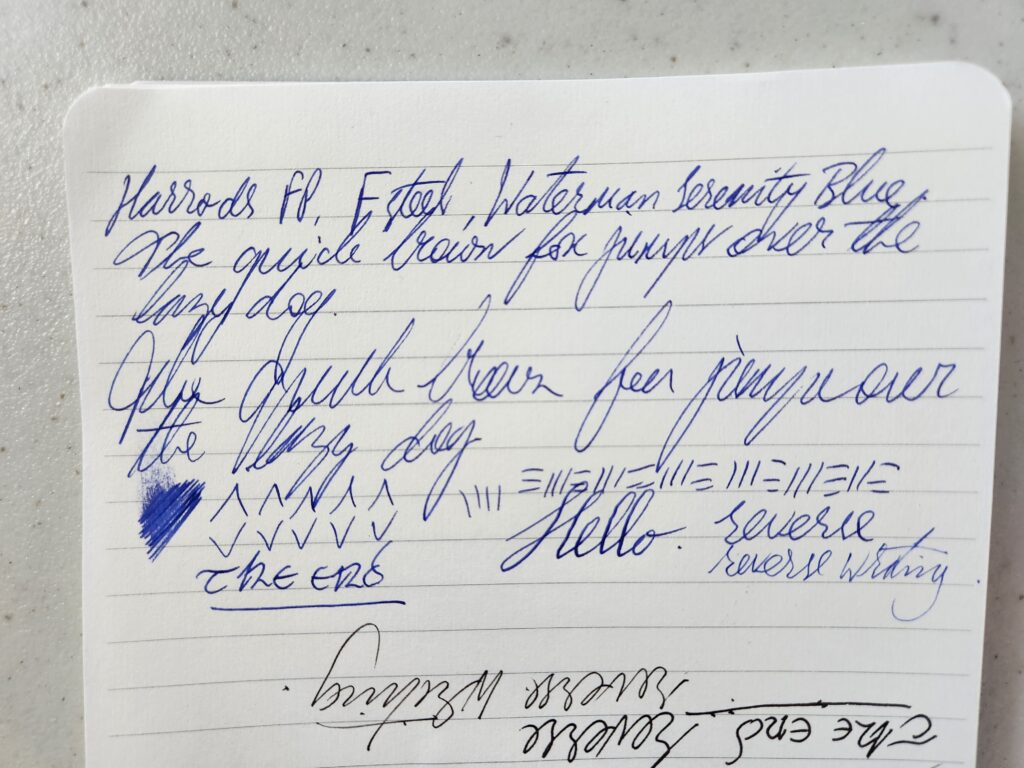 Harrods FP, F steel, Waterman Serenity Blue.
The quick brown fox jumps over the
lazy dog.
The quick brown fox jumps over
the lazy dog
Hello. reverse
reverse writing.
THE END
reverse writing.
THE END reverse